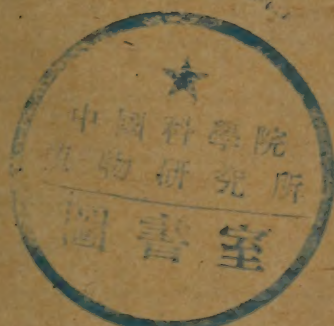 中國科學院
植物研究所
圖書室